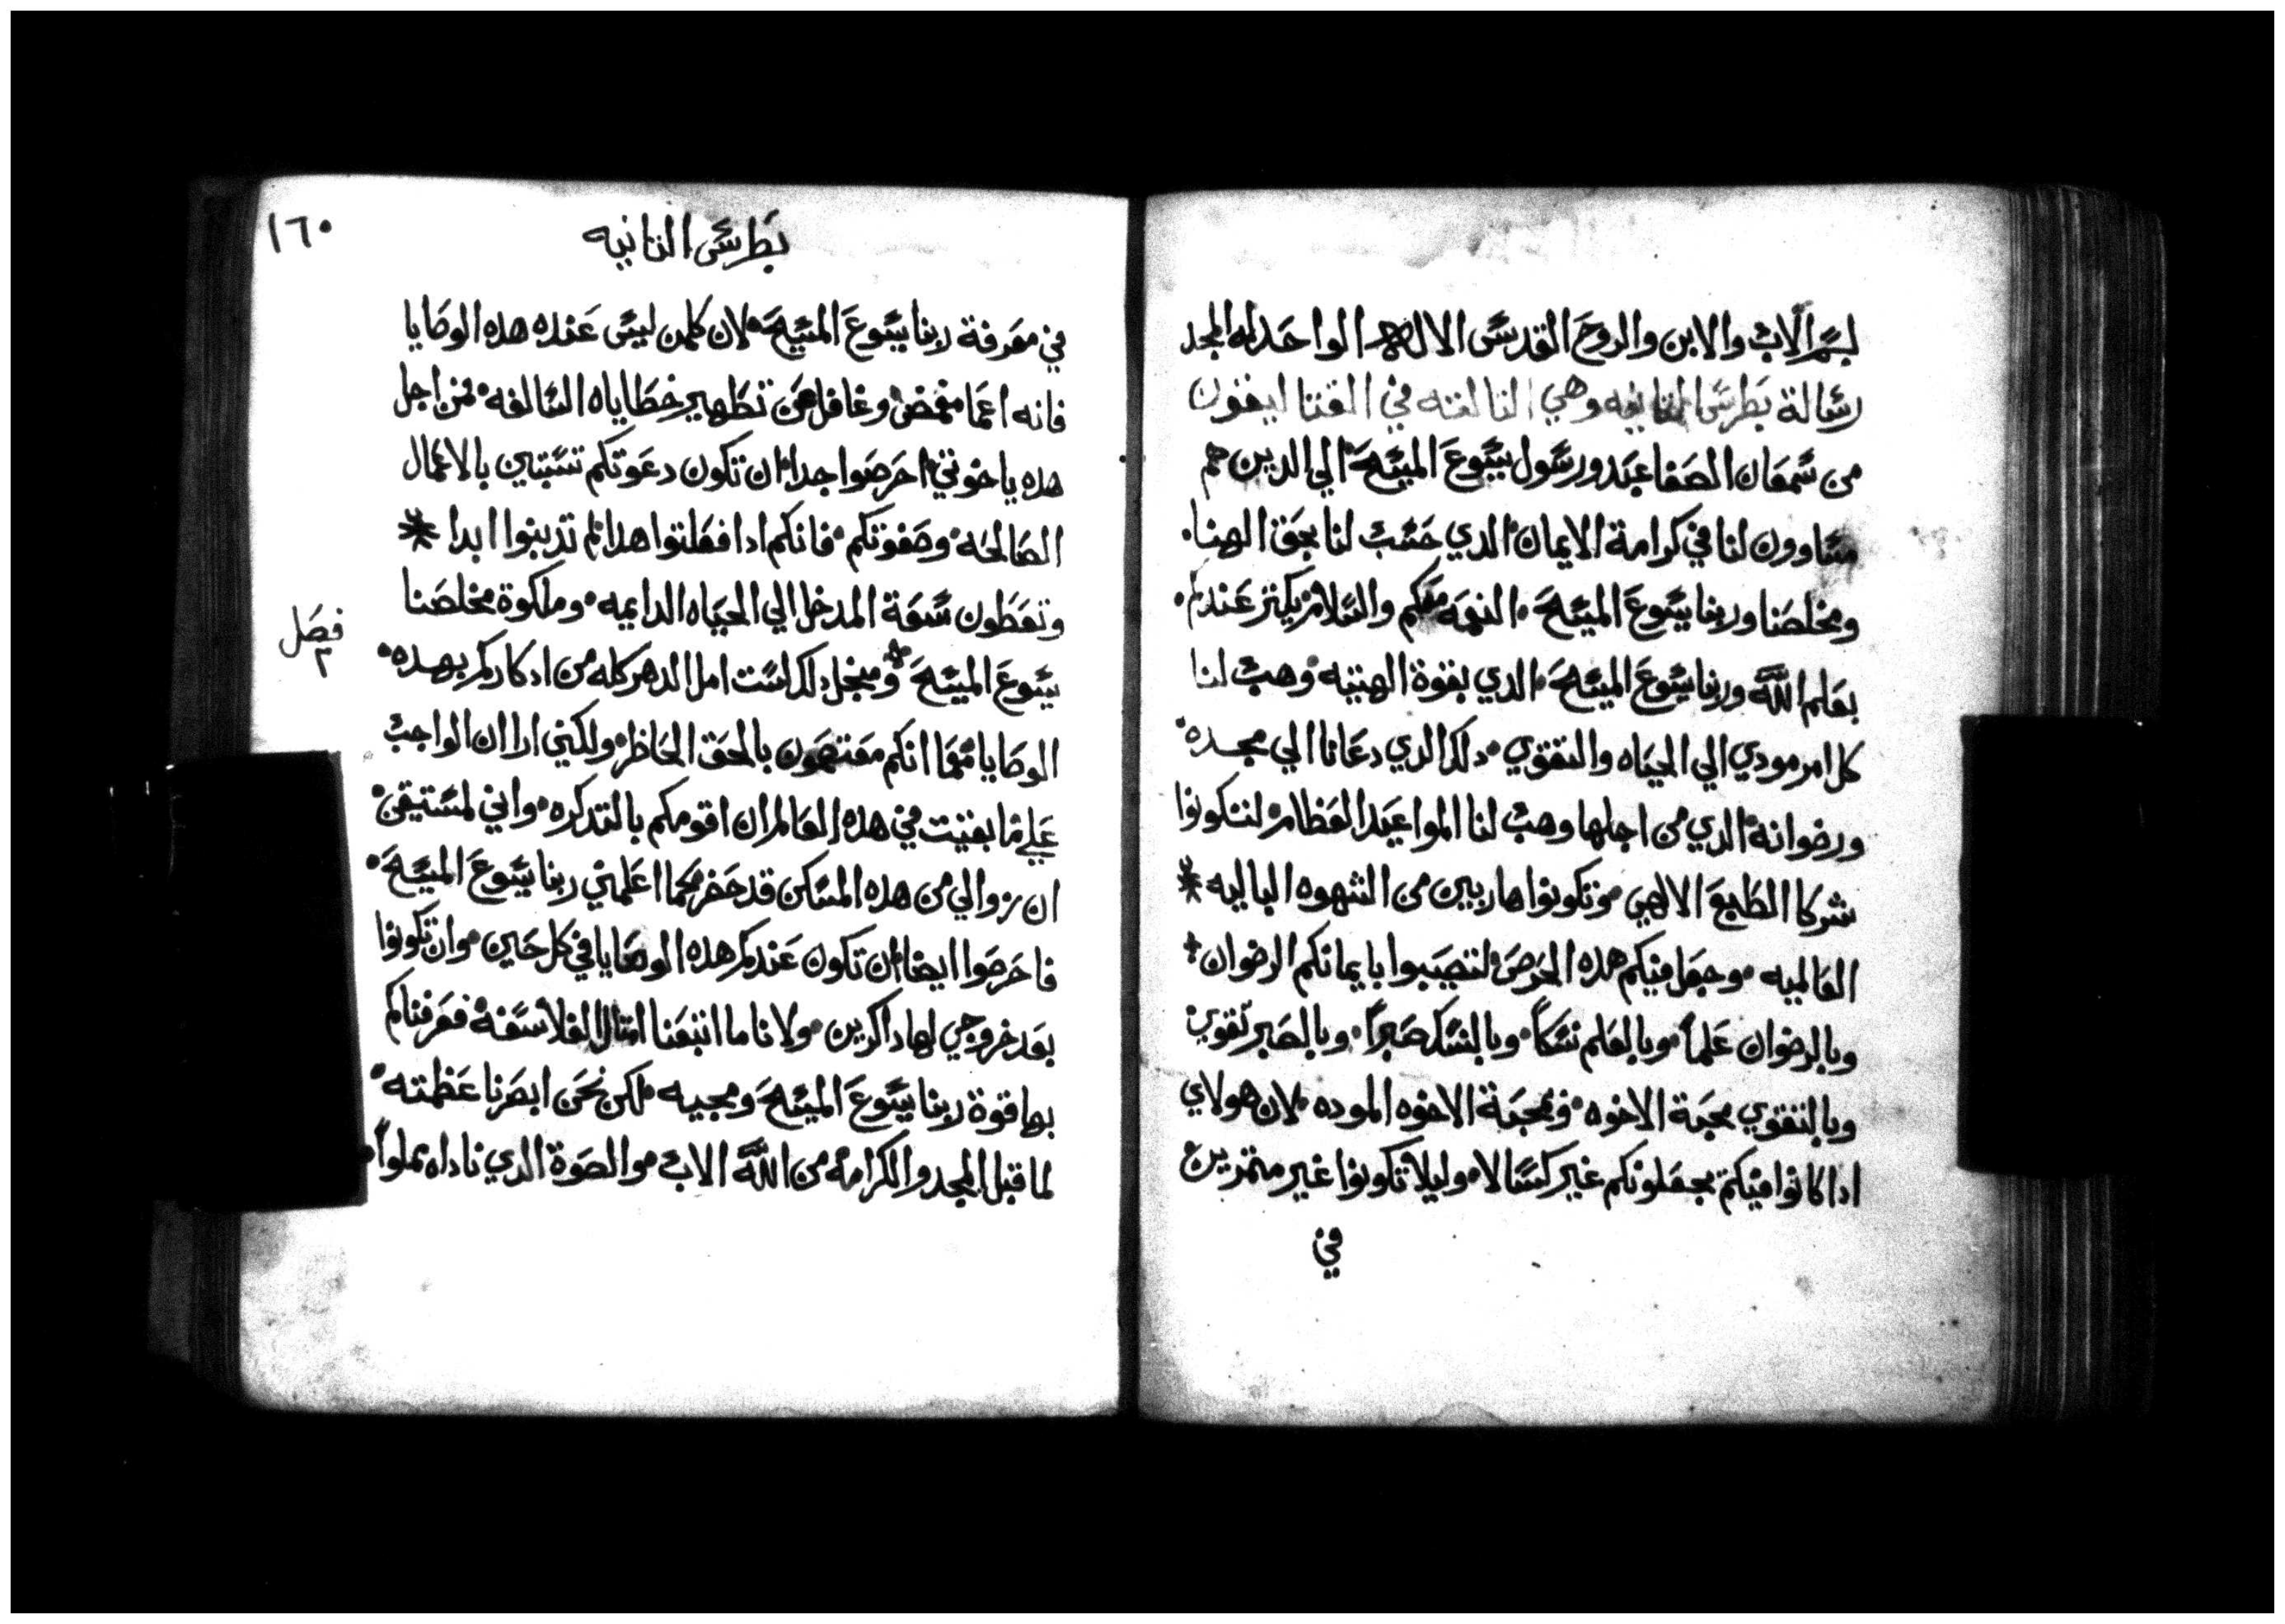 بسم الاب والابن والروح القدس الاله الواحد له المجد
رسالة بطرس الثانيه وهي الثالثه في القتاليقون
من سمعان الصفا عبد ورسول يسوع المسيح الي الدين هم
مساوون لنا في كرامة الايمان الدي حسب لنا بحق الهنا
ومخلصنا وربنا يسوع المسيح النعمه معكم والسلام يكثر عندكم
بعلم الله وربنا يسوع المسيح الدي بقوة الهيته وهب لنا
كل امر مودي الي الحياه والتقوي دلك الدي دعانا الي مجده
ورضوانه الدي من اجلها وهب لنا المواعيد العظام لتكونوا
شركا الطبع الالهي وتكونوا هاربين من الشهوه الباليه
العالميه وجعل فيكم هده الحرص لتصيبوا بايمانكم الرضوان
وبالرضوان علما وبالعلم نسكاً وبالنسك صبراً وبالصبر تقوي
وبالتقوي محبة الاخوه وبمحبة الاخوه الموده لان هولاي
ادا كانوا فيكم يجعلونكم غير كسالا وليلا تكونوا غير متمرين
في
بطرس الثانيه
١٦٠
في معرفة ربنا يسوع المسيح لان كلمن ليس عنده هده الوصايا
فانه اعما مغمض وغافل عن تطهير خطاياه السالفه فمن اجل
هده ياخوتي احرصوا جدا ان تكون دعوتكم تتبتين بالاعمال
الصالحه وصفوتكم فانكم ادا فعلتوا هدا لم تدنبوا ابدا
وتعطون سعة المدخل الي الحياه الدايمه وملكوة مخلصنا
فصل
٢
يسوع المسيح ومنجل دلك است امل الدهر كله من ادكاركم بهده
الوصايا مهما انكم معتصمون بالحق الحاظر ولكني ارا ان الواجب
علي ما بقيت في هده العالم ان اقومكم بالتدكره واني لمستيقن
ان زوالي من هده المسكن قد حضر كما اعلمني ربنا يسوع المسيح
فاحرصوا ايضا ان تكون عندكم هده الوصايا في كل حين وان تكونوا
بعد خروجي لها داكرين ولانا ما اتبعنا امتال الفلاسفه فعرفناكم
بها قوة ربنا يسوع المسيح ومجيه لكن نحن ابصرنا عظمته
لما قبل المجد والكرامه من الله الاب والصوة الدي ناداه مملوا